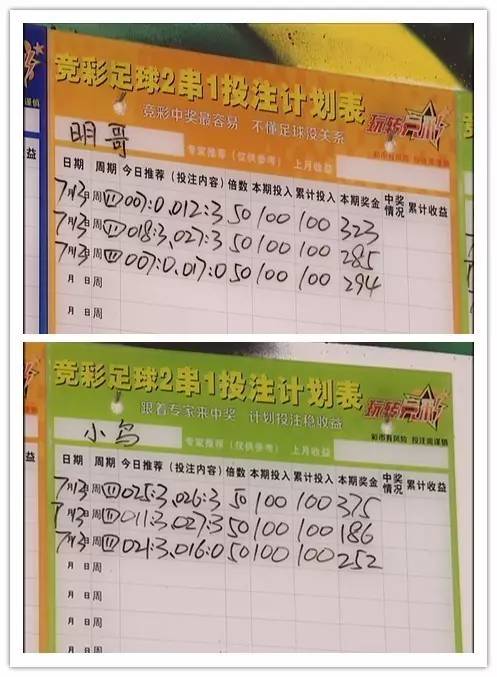 竞彩足球2串1投注计划表
竞彩中奖最容易 不懂足球没关系
玩转竞彩
明哥 专家推荐（仅供参考） 上月收益
彩市有风险 投注需谨慎
日期 周期 今日推荐（投注内容） 倍数 本期投入 累计投入 本期奖金 中奖情况 累计收益
7月3日 周四 007:0、012:3 50 100 100 323
7月3日 周四 018:3、027:3 50 100 100 285
7月3日 周四 007:0、017:0 50 100 100 294
月 日 周
月 日 周
竞彩足球2串1投注计划表
跟着专家来中奖 计划投注稳收益
玩转竞彩
小鸟 专家推荐（仅供参考） 上月收益
彩市有风险 投注需谨慎
日期 周期 今日推荐（投注内容） 倍数 本期投入 累计投入 本期奖金 中奖情况 累计收益
7月3日 周四 025:3、026:3 50 100 100 375
7月3日 周四 011:3、027:3 50 100 100 186
7月3日 周四 021:3、016:0 50 100 100 252
月 日 周
月 日 周
月 日 周
月 日 周